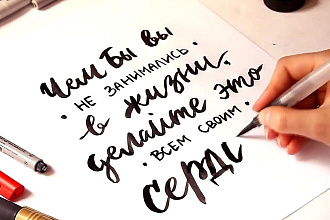 Чем бы вы
· не занимались
в жизни,
делайте это
· всем своим ·
сердц